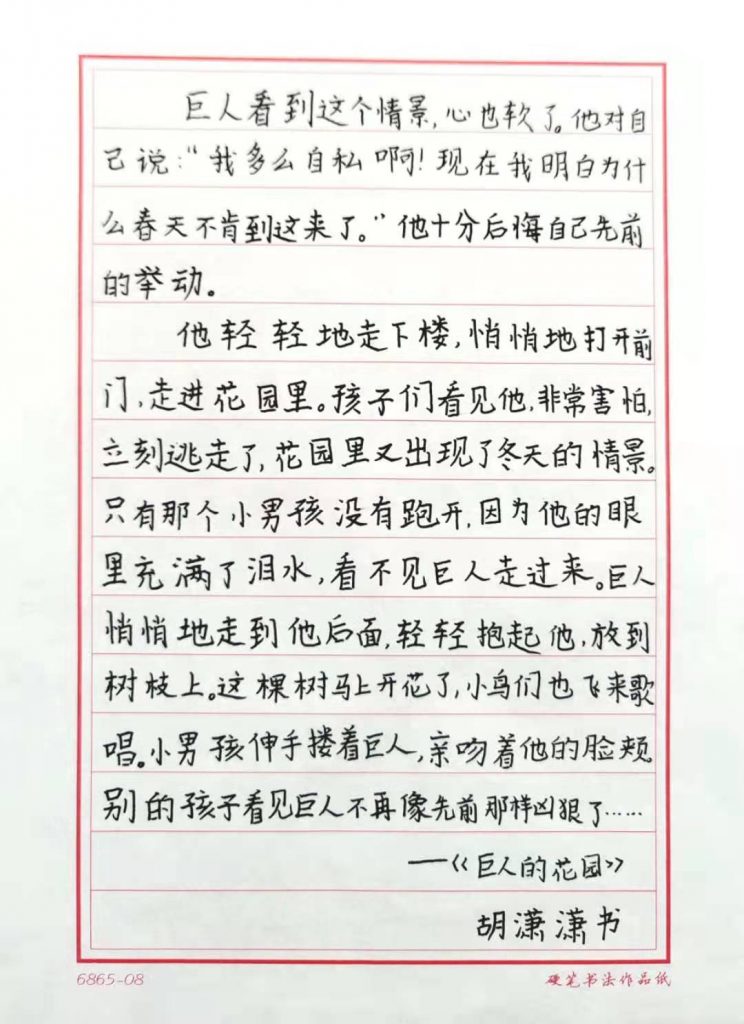 巨人看到这个情景,心也软了。他对自
己说:“我多么自私啊!现在我明白为什
么春天不肯到这来了。”他十分后悔自己先前
的举动。
他轻轻地走下楼,悄悄地打开前
门,走进花园里。孩子们看见他,非常害怕,
立刻逃走了,花园里又出现了冬天的情景。
只有那个小男孩没有跑开,因为他的眼
里充满了泪水,看不见巨人走过来。巨人
悄悄地走到他后面,轻轻抱起他,放到
树枝上。这棵树马上开花了,小鸟们也飞来歌
唱。小男孩伸手搂着巨人,亲吻着他的脸颊。
别的孩子看见巨人不再像先前那样凶狠了……
——《巨人的花园》
胡潇潇书
6865-08 硬笔书法作品纸